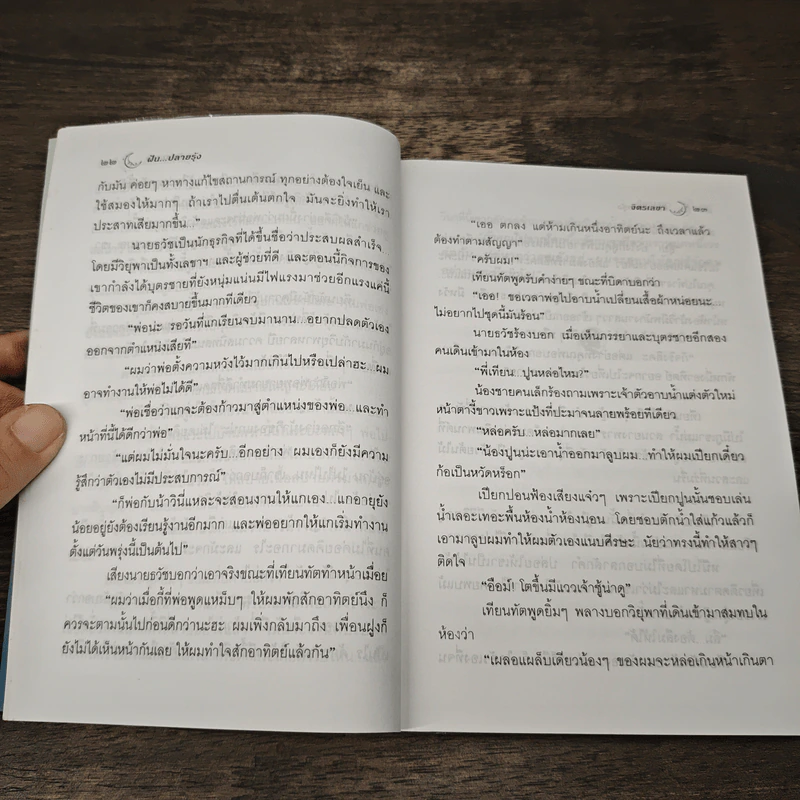 ๒๒ ฝัน...ปลายรุ้ง
กับมัน ค่อยๆ หาทางแก้ไขสถานการณ์ ทุกอย่างต้องใจเย็น และ
ใช้สมองให้มากๆ ถ้าเราไปตื่นเต้นตกใจ มันจะยิ่งทำให้เรา
ประสาทเสียมากขึ้น ”
นายธวัชเป็นนักธุรกิจที่ได้ขึ้นชื่อว่าประสบผลสำเร็จ
โดยมีวิยุพาเป็นทั้งเลขาฯ และผู้ช่วยที่ดี และตอนนี้กิจการของ
เขากำลังได้บุตรชายที่ยังหนุ่มแน่นมีไฟแรงมาช่วยอีกแรงแค่นี้
ชีวิตของเขาก็คงสบายขึ้นมากทีเดียว
“พ่อน่ะ รอวันที่แกเรียนจบมานาน...อยากปลดตัวเอง
ออกจากตำแหน่งเสียที”
“ผมว่าพ่อตั้งความหวังไว้มากเกินไปหรือเปล่าฮะ...ผม
อาจทำงานให้พ่อไม่ได้ดี”
“พ่อเชื่อว่าแกจะต้องก้าวมาสู่ตำแหน่งของพ่อ...และทำ
หน้าที่นี้ได้ดีกว่าพ่อ”
“แต่ผมไม่มั่นใจนะครับ...อีกอย่าง ผมเองก็ยังมีความ
รู้สึกว่าตัวเองไม่มีประสบการณ์”
“ก็พ่อกับน้าวินีแหละจะสอนงานให้แกเอง...แกอายุยัง
น้อยอยู่ยังต้องเรียนรู้งานอีกมาก และพ่ออยากให้แกเริ่มทำงาน
ตั้งแต่วันพรุ่งนี้เป็นต้นไป”
เสียงนายธวัชบอกว่าเอาจริงขณะที่เทียนทัตทำหน้าเมื่อย
“ผมว่าเมื่อกี้ที่พ่อพูดแหม็บๆ ให้ผมพักสักอาทิตย์นึง ก็
ควรจะตามนั้นไปก่อนดีกว่านะฮะ ผมเพิ่งกลับมาถึง เพื่อนฝูงก็
ยังไม่ได้เห็นหน้ากันเลย ให้ผมทำใจสักอาทิตย์แล้วกัน”
จิตรเลขา ๒๓
“เออ ตกลง แต่ห้ามเกินหนึ่งอาทิตย์นะ ถึงเวลาแล้ว
ต้องทำตามสัญญา”
“ครับผม!”
เทียนทัตพูดรับคำง่ายๆ ขณะที่บิดาบอกว่า
“เออ! ขอเวลาพ่อไปอาบน้ำเปลี่ยนเสื้อผ้าหน่อยนะ...
ไม่อยากไปชุดนี้มันร้อน”
นายธวัชร้องบอก เมื่อเห็นภรรยาและบุตรชายอีกสอง
คนเดินเข้ามาในห้อง
“พี่เทียน...ปูนหล่อไหม?”
น้องชายคนเล็กร้องถามเพราะเจ้าตัวอาบน้ำแต่งตัวใหม่
หน้าตางี้ขาวเพราะแป้งที่ปะมาจนลายพร้อยทีเดียว
“หล่อครับ หล่อมากเลย”
“น้องปูนน่ะเอาน้ำออกมาลูบผม...ทำให้ผมเปียกเดี๋ยว
ก้อเป็นหวัดหร็อก”
เปียกปอนฟ้องเสียงแจ๋วๆ เพราะเปียกปูนนั้นชอบเล่น
น้ำเลอะเทอะพื้นห้องน้ำห้องนอน โดยชอบตักน้ำใส่แก้วแล้วก็
เอามาลูบผมทำให้ผมตัวเองแนบศีรษะ นัยว่าทรงนี้ทำให้สาวๆ
ติดใจ
“อือม์! โตขึ้นมีแววเจ้าชู้น่าดู”
เทียนทัตพูดยิ้มๆ พลางบอกวิยุพาที่เดินเข้ามาสมทบใน
ห้องว่า
“เผลอแผล็บเดียวน้องๆ ของผมจะหล่อเกินหน้าเกินตา